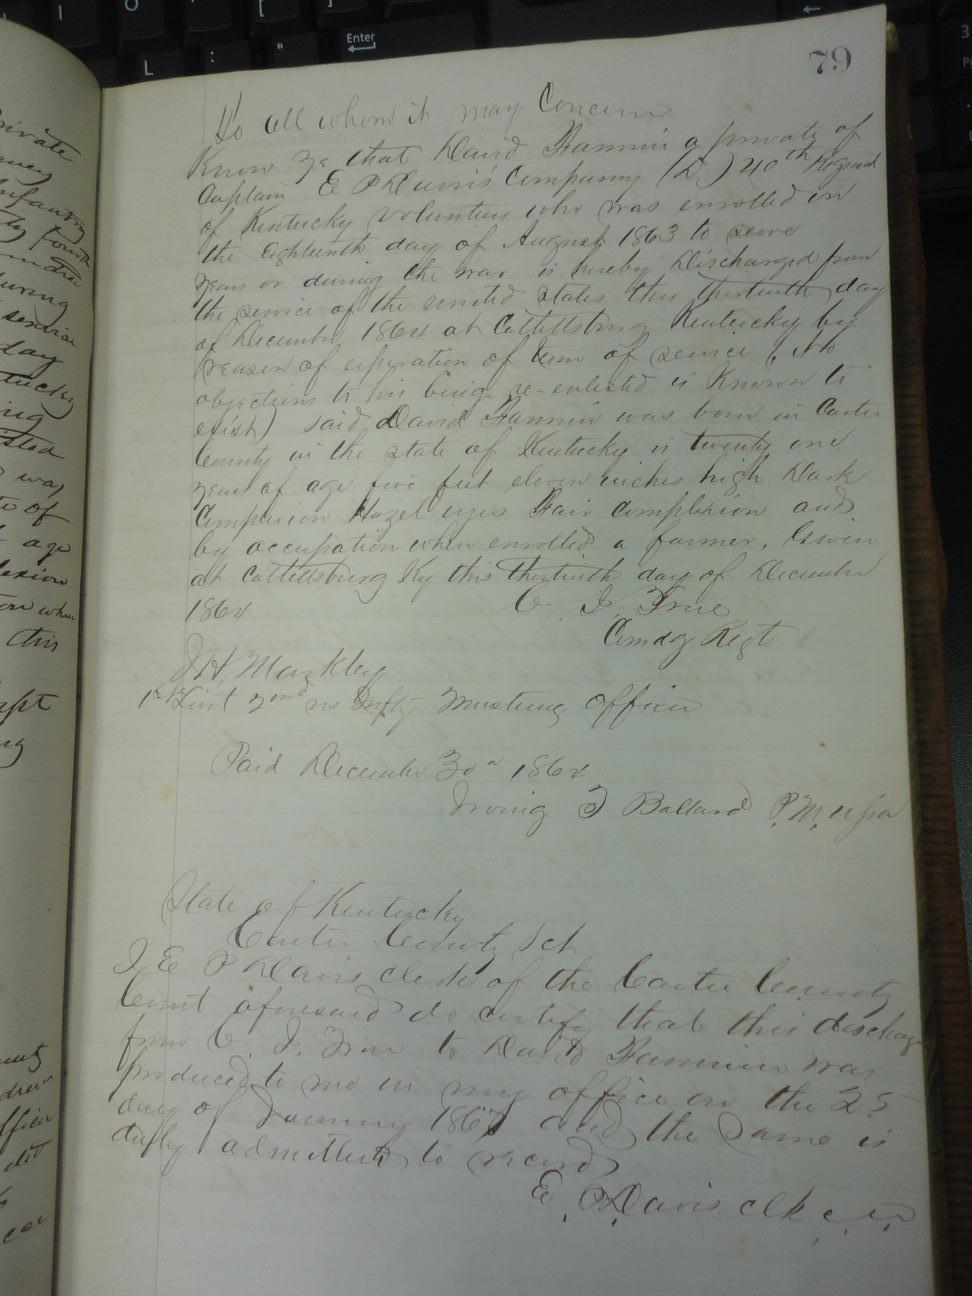 79
To all whom it may Concern
Know Ye that David Fannin a private of
Captain E P Davis's Company (D) 40th Regand
of Kentucky volunteers who was enrolled on
the Eighteenth day of August 1863 to serve
years or during the war is hereby Discharged from
the service of the united states this thirtieth day
of December 1864 at Cattettsburg Kentucky by
reason of expiration of term of service (No
objections to his being re-enlisted is Known to
exist) said David Fannin was born in Carter
County in the state of Kentucky is twenty one
years of age five feet eleven inches high Dark
Complexion Hazel eyes Fair complexion and
by occupation when enrolled a farmer, Given
at Cattettsburg Ky this thirtieth day of December
1864 C. J. True
Comdg Regt
J H. Markley
1st Lieut 2nd Infty Mustering officer
Paid December 30th 1864
Irving Ballard P.M. usa
State of Kentucky
Carter County Sct
I E P Davis clerk of the Carter County
Court aforesaid do certify that this discharge
from C. J. True to David Fannin was
produced to me in my office on the 25
day of January 1867 and the same is
duly admitted to record
E. P. Davis clk
Enter
L
:
"
private
Infantry
fourth
during
service
day
ing
way
to of
age
when
this